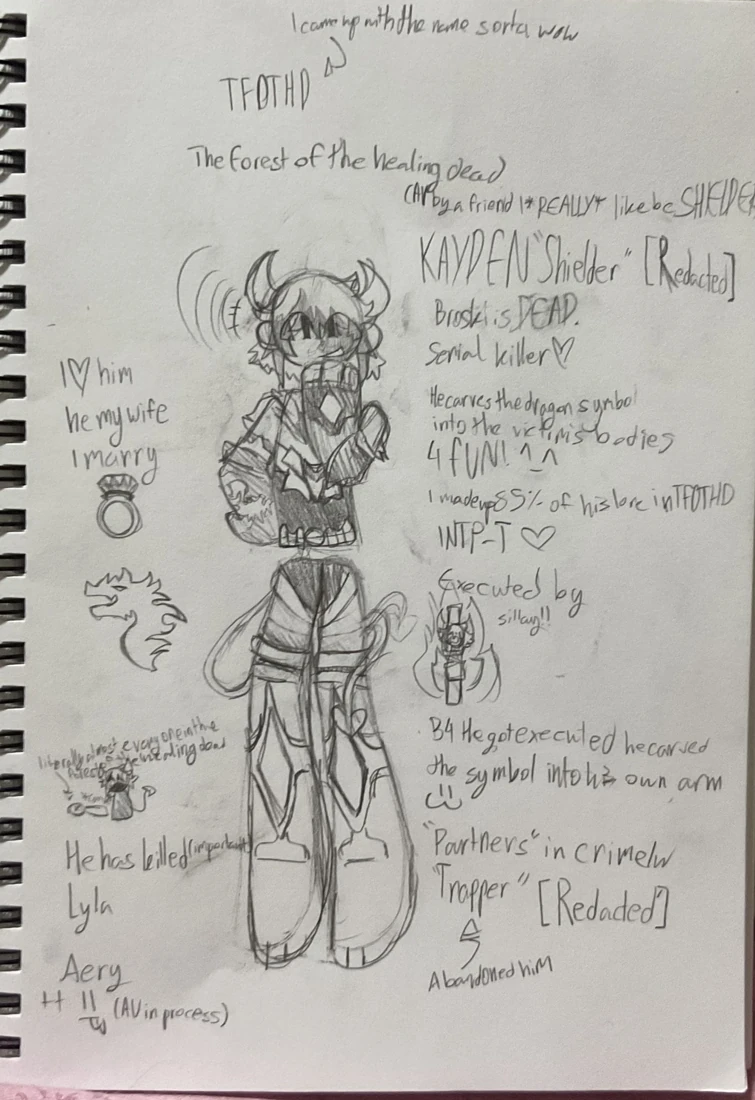 I came up with the name sorta wow
TFOTHD
The forest of the healing dead
by a friend I *REALLY* like bc SHIELDER
KAYDEN "Shielder" [Redacted]
Broski is DEAD.
Serial killer♡
He carves the dragon symbol
into the victim's bodies
4 FUN! ^_^
I made up 85% of his lore in TFOTHD
INTP-T ♡
I ♡ him
he my wife
I marry
Executed by
sillay!!
B4 He got executed he carved
the symbol into his own arm
literally almost everyone in the
healing dead
He has killed (important)
Lyla
Aery
(AU in process)
"Partners" in crime w
"Trapper" [Redacted]
Abandoned him